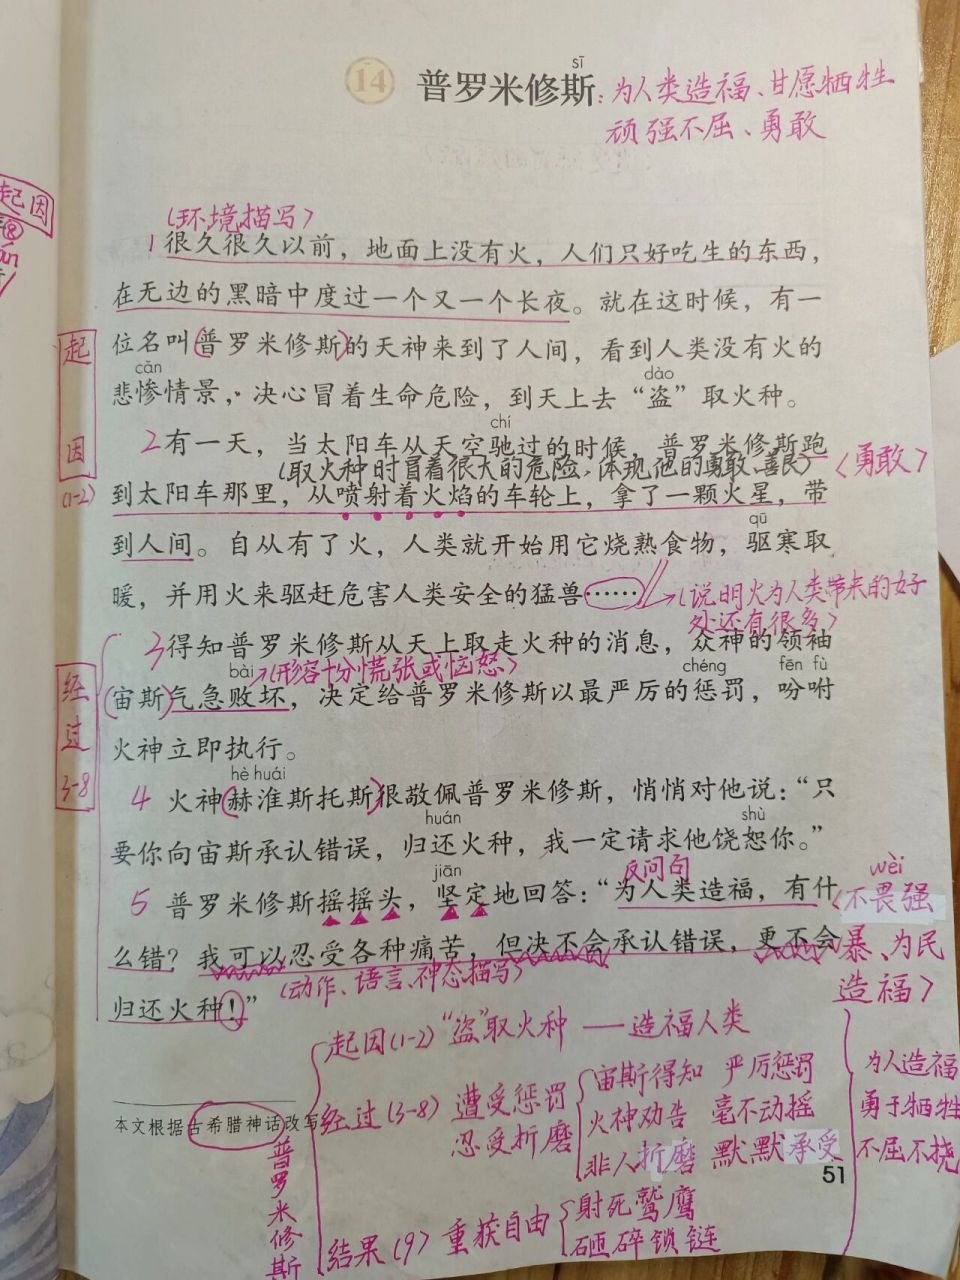 sī
14 普罗米修斯:为人类造福、甘愿牺牲
顽强不屈、勇敢
起因
(环境描写)
1 很久很久以前，地面上没有火，人们只好吃生的东西，
在无边的黑暗中度过一个又一个长夜。就在这时候，有一
位名叫(普罗米修斯)的天神来到了人间，看到人类没有火的
cǎn dào
悲惨情景，决心冒着生命危险，到天上去“盗”取火种。
起因
(1-2)
chí
2 有一天，当太阳车从天空驰过的时候，普罗米修斯跑
(取火种时冒着很大的危险，体现他的勇敢、善良) (勇敢)
到太阳车那里，从喷射着火焰的车轮上，拿了一颗火星，带
qū
到人间。自从有了火，人类就开始用它烧熟食物，驱寒取
暖，并用火来驱赶危害人类安全的猛兽……
(说明火为人类带来的好
处还有很多)
3 得知普罗米修斯从天上取走火种的消息，众神的领袖
bài (形容十分慌张或恼怒) chéng fēn fù
(宙斯)气急败坏，决定给普罗米修斯以最严厉的惩罚，吩咐
火神立即执行。
经过
3-8
hè huái
4 火神(赫淮斯托斯)很敬佩普罗米修斯，悄悄对他说：“只
huán shù
要你向宙斯承认错误，归还火种，我一定请求他饶恕你。”
jiān 反问句 wèi
5 普罗米修斯摇摇头，坚定地回答：“为人类造福，有什
(不畏强
么错？我可以忍受各种痛苦，但决不会承认错误，更不会
暴、为民
(动作、语言、神态描写)
造福)
归还火种！”
起因(1-2) “盗”取火种 — 造福人类
经过(3-8) 遭受惩罚
忍受折磨
宙斯得知 严厉惩罚
火神劝告 毫不动摇
非人折磨 默默承受
为人造福
勇于牺牲
不屈不挠
本文根据古希腊神话改写
普罗米修斯
51
结果(9) 重获自由
射死鹫鹰
砸碎锁链